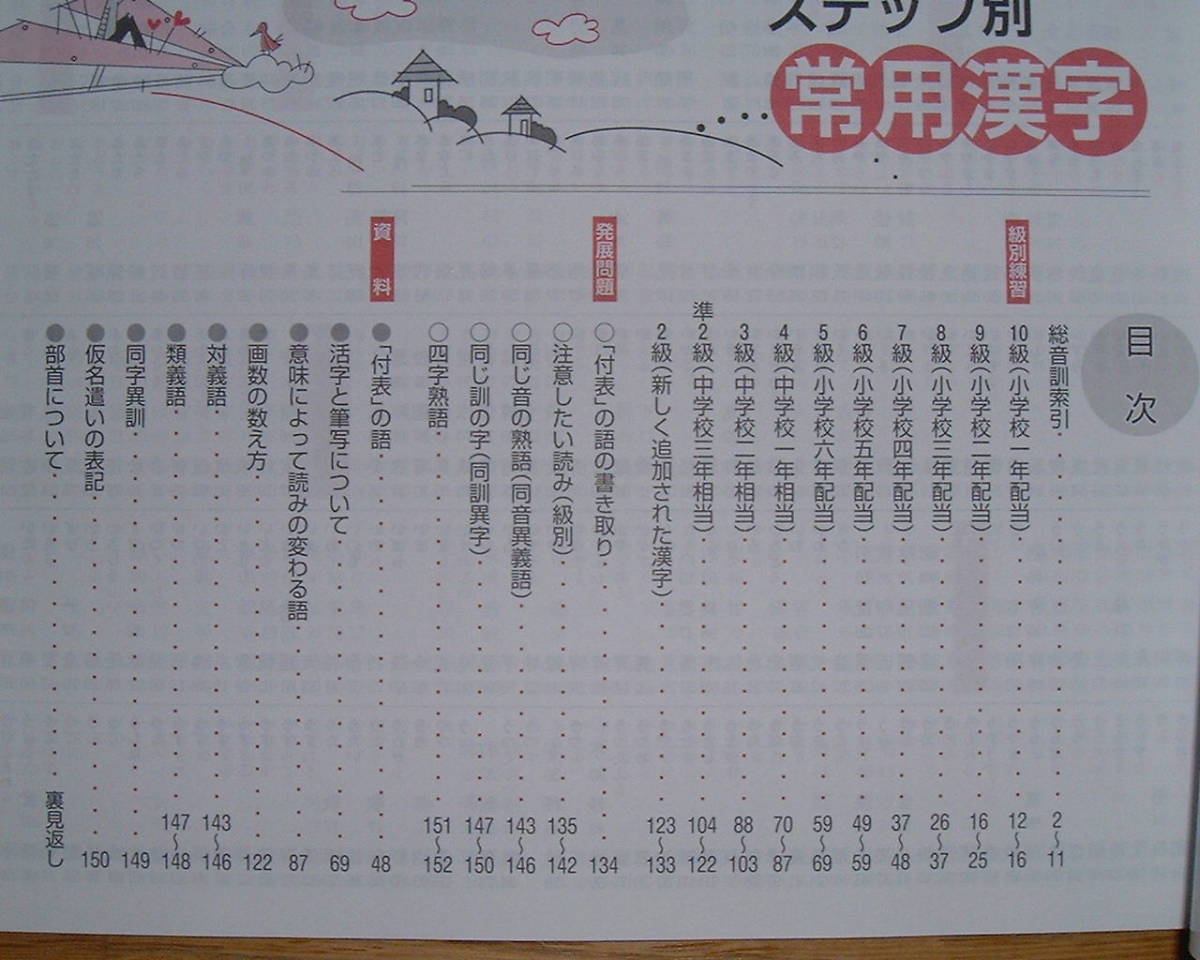 ステップ別
常用漢字
目次
総音訓索引 2〜11
級別練習
10級(小学校一年配当) 12〜16
9級(小学校二年配当) 16〜25
8級(小学校三年配当) 26〜37
7級(小学校四年配当) 37〜48
6級(小学校五年配当) 49〜59
5級(小学校六年配当) 59〜69
4級(中学校一年相当) 70〜87
3級(中学校二年相当) 88〜103
準2級(中学校三年相当) 104〜122
2級(新しく追加された漢字) 123〜133
発展問題
○「付表」の語の書き取り 134
○注意したい読み(級別) 135〜142
○同じ音の熟語(同音異義語) 143〜146
○同じ訓の字(同訓異字) 147〜150
○四字熟語 151〜152
資料
●「付表」の語 48
●活字と筆写について 69
●意味によって読みの変わる語 87
●画数の数え方 122
●対義語 143〜146
●類義語 147〜148
●同字異訓 149
●仮名遣いの表記 150
●部首について 裏見返し